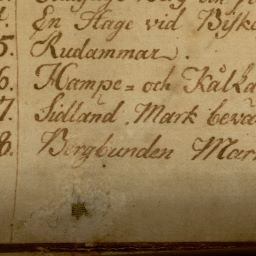 En Hage vid Bisko
5. Rudammar.
6. Hampe= och Kålka
7. Sidländ Mark bevä
8. Bergbunden Mar